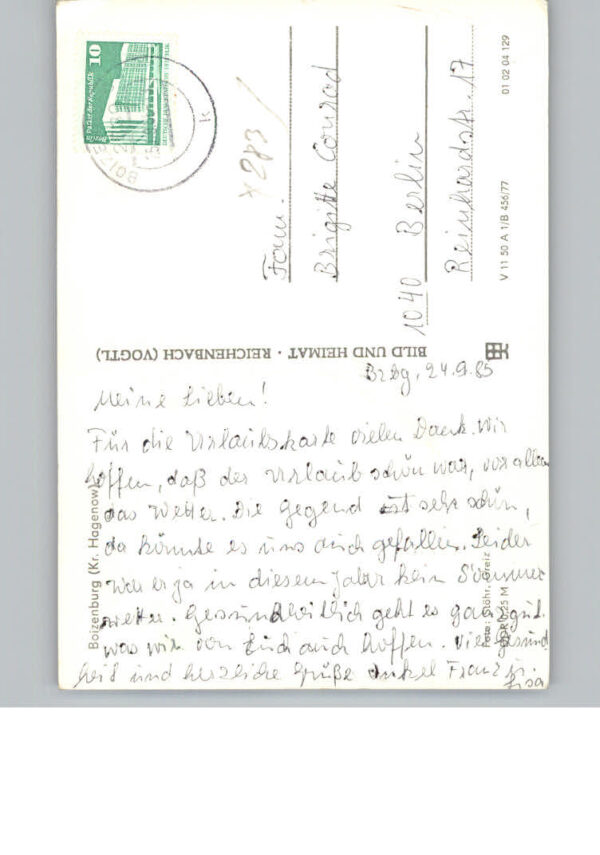 10
Berlin, Palast der Republik
BOIZENBURG
k
x 283 /
Fam.
Brigitte Conrad
1040 Berlin
Reinhardstr. 17
01 02 04 129
V 11 50 A 1/B 456/77
BILD UND HEIMAT · REICHENBACH (VOGTL)
Bzbg, 24.9.85
Meine Lieben!
Für die Urlaubskarte vielen Dank. Wir
hoffen, daß der Urlaub schön war, vor allem
das Wetter. Die Gegend ist sehr schön,
da könnte es uns auch gefallen. Leider
war er ja in diesem Jahr kein Sommer
wetter. Gesundheitlich geht es ganz gut
was wir von Euch auch hoffen. Viel Gesund
heit und herzliche Grüße Onkel Franz u.
Lisa
Boizenburg (Kr. Hagenow)
Foto: Stöhr, Greiz
25 M